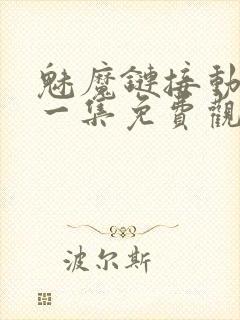 魅魔鏈接動
一集免費觀
波尔斯